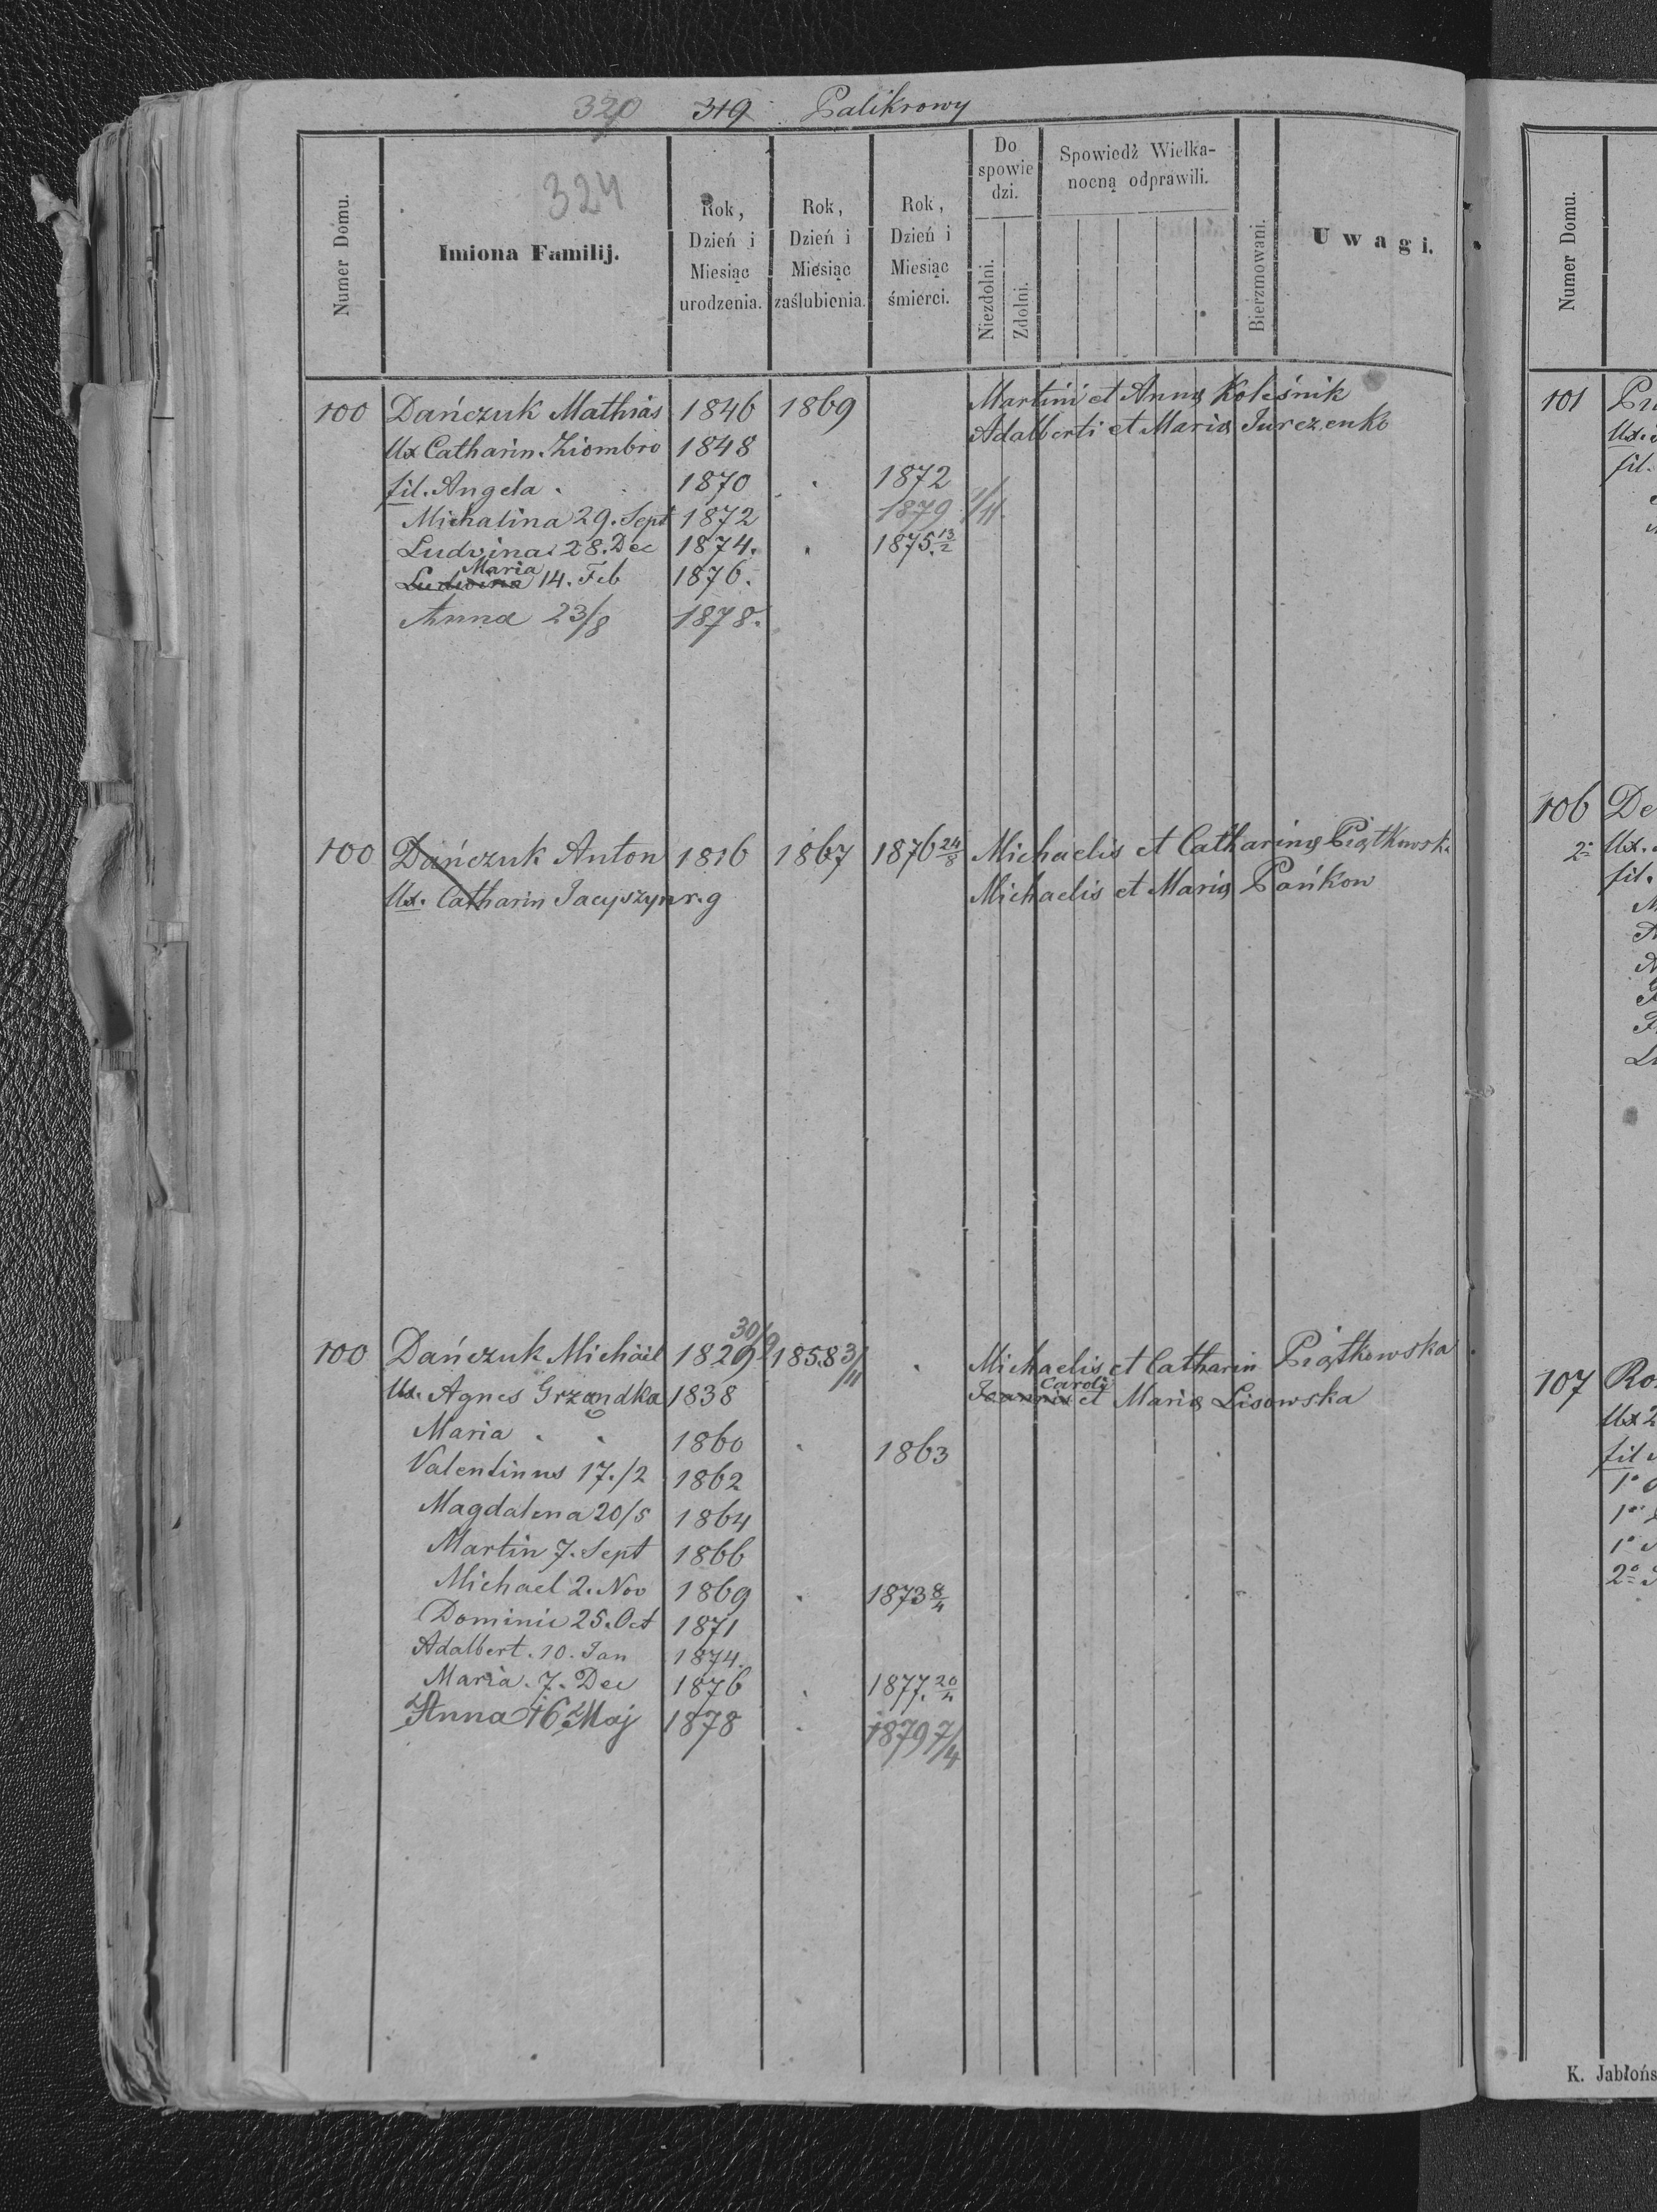 320 319 Palikrowy
324
Numer Domu.
Imiona Familij.
Rok, Dzień i Miesiąc urodzenia.
Rok, Dzień i Miesiąc zaślubienia.
Rok, Dzień i Miesiąc śmierci.
Do spowie dzi.
Niezdolni.
Zdolni.
Spowiedź Wielka-
nocną odprawili.
Bierzmowani.
Uwagi.
100 Dańczuk Mathias 1846 1869 Martini et Anna Koleśnik
Ux Catharin. Ziombro 1848 Adalberti et Maria Jurczenko
fil. Angela 1870 1872
Michalina 29. Sept 1872 1879
Ludvina 28. Dec 1874. 1875. 13/2
Maria
Ludwina 14. Feb 1876.
Anna 23/8 1878.
100 Dańczuk Anton 1816 1867 1876 24/8 Michaelis et Catharina Piątkowsk
Ux. Catharin Jacyszyn r. g Michaelis et Maria Pańkow
30/9
100 Dańczuk Michael 1829 1858 3/11 Michaelis et Catharin Piątkowska
Caroli
Ux. Agnes Grzandka 1838 Joannis et Maria Lisowska
Maria 1860 1863
Valentinus 17./2 1862
Magdalena 20/5 1864
Martin 7. Sept 1866
Michael 2. Nov 1869 1873 8/4
Dominic 25. Oct 1871
Adalbert. 10. Jan 1874.
Maria. 7. Dec 1876 1877. 20/4
Anna 16 Maj 1878 1879 7/4
Numer Domu.
101
Ux.
fil.
106 De
2° Ux.
fil.
107 Ro
Ux 2
fil
1°
1°
1°
2°
K. Jabłońs